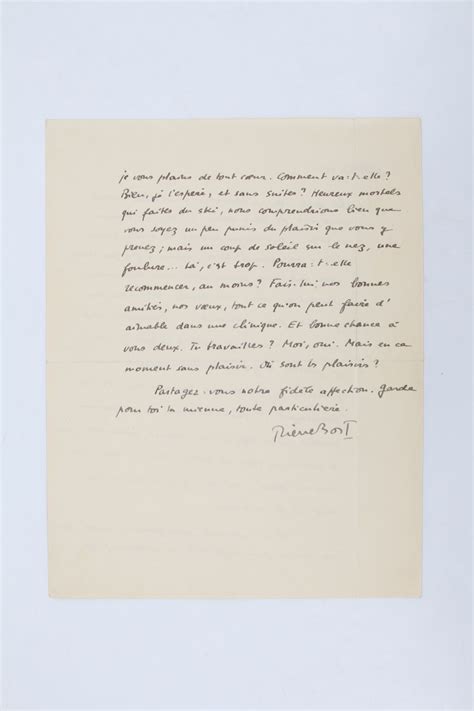 je vous plains de tout cœur. Comment va-t-elle?
Bien, je l'espère, et sans suites? Heureux mortels
qui faites du ski, nous comprendrions bien que
vous soyez un peu punis du plaisir que vous y
prenez; mais un coup de soleil sur le nez, une
foulure... Là, c'est trop. Pourra-t-elle
recommencer, au moins? Fais-lui nos bonnes
amitiés, nos vœux, tout ce qu'on peut faire d'
aimable dans une clinique. Et bonne chance à
vous deux. Tu travailles? Moi, oui. Mais en ce
moment sans plaisir. Où sont les plaisirs?
Partagez-vous notre fidèle affection. Garde
pour toi la mienne, toute particulière.
Pierre Bost